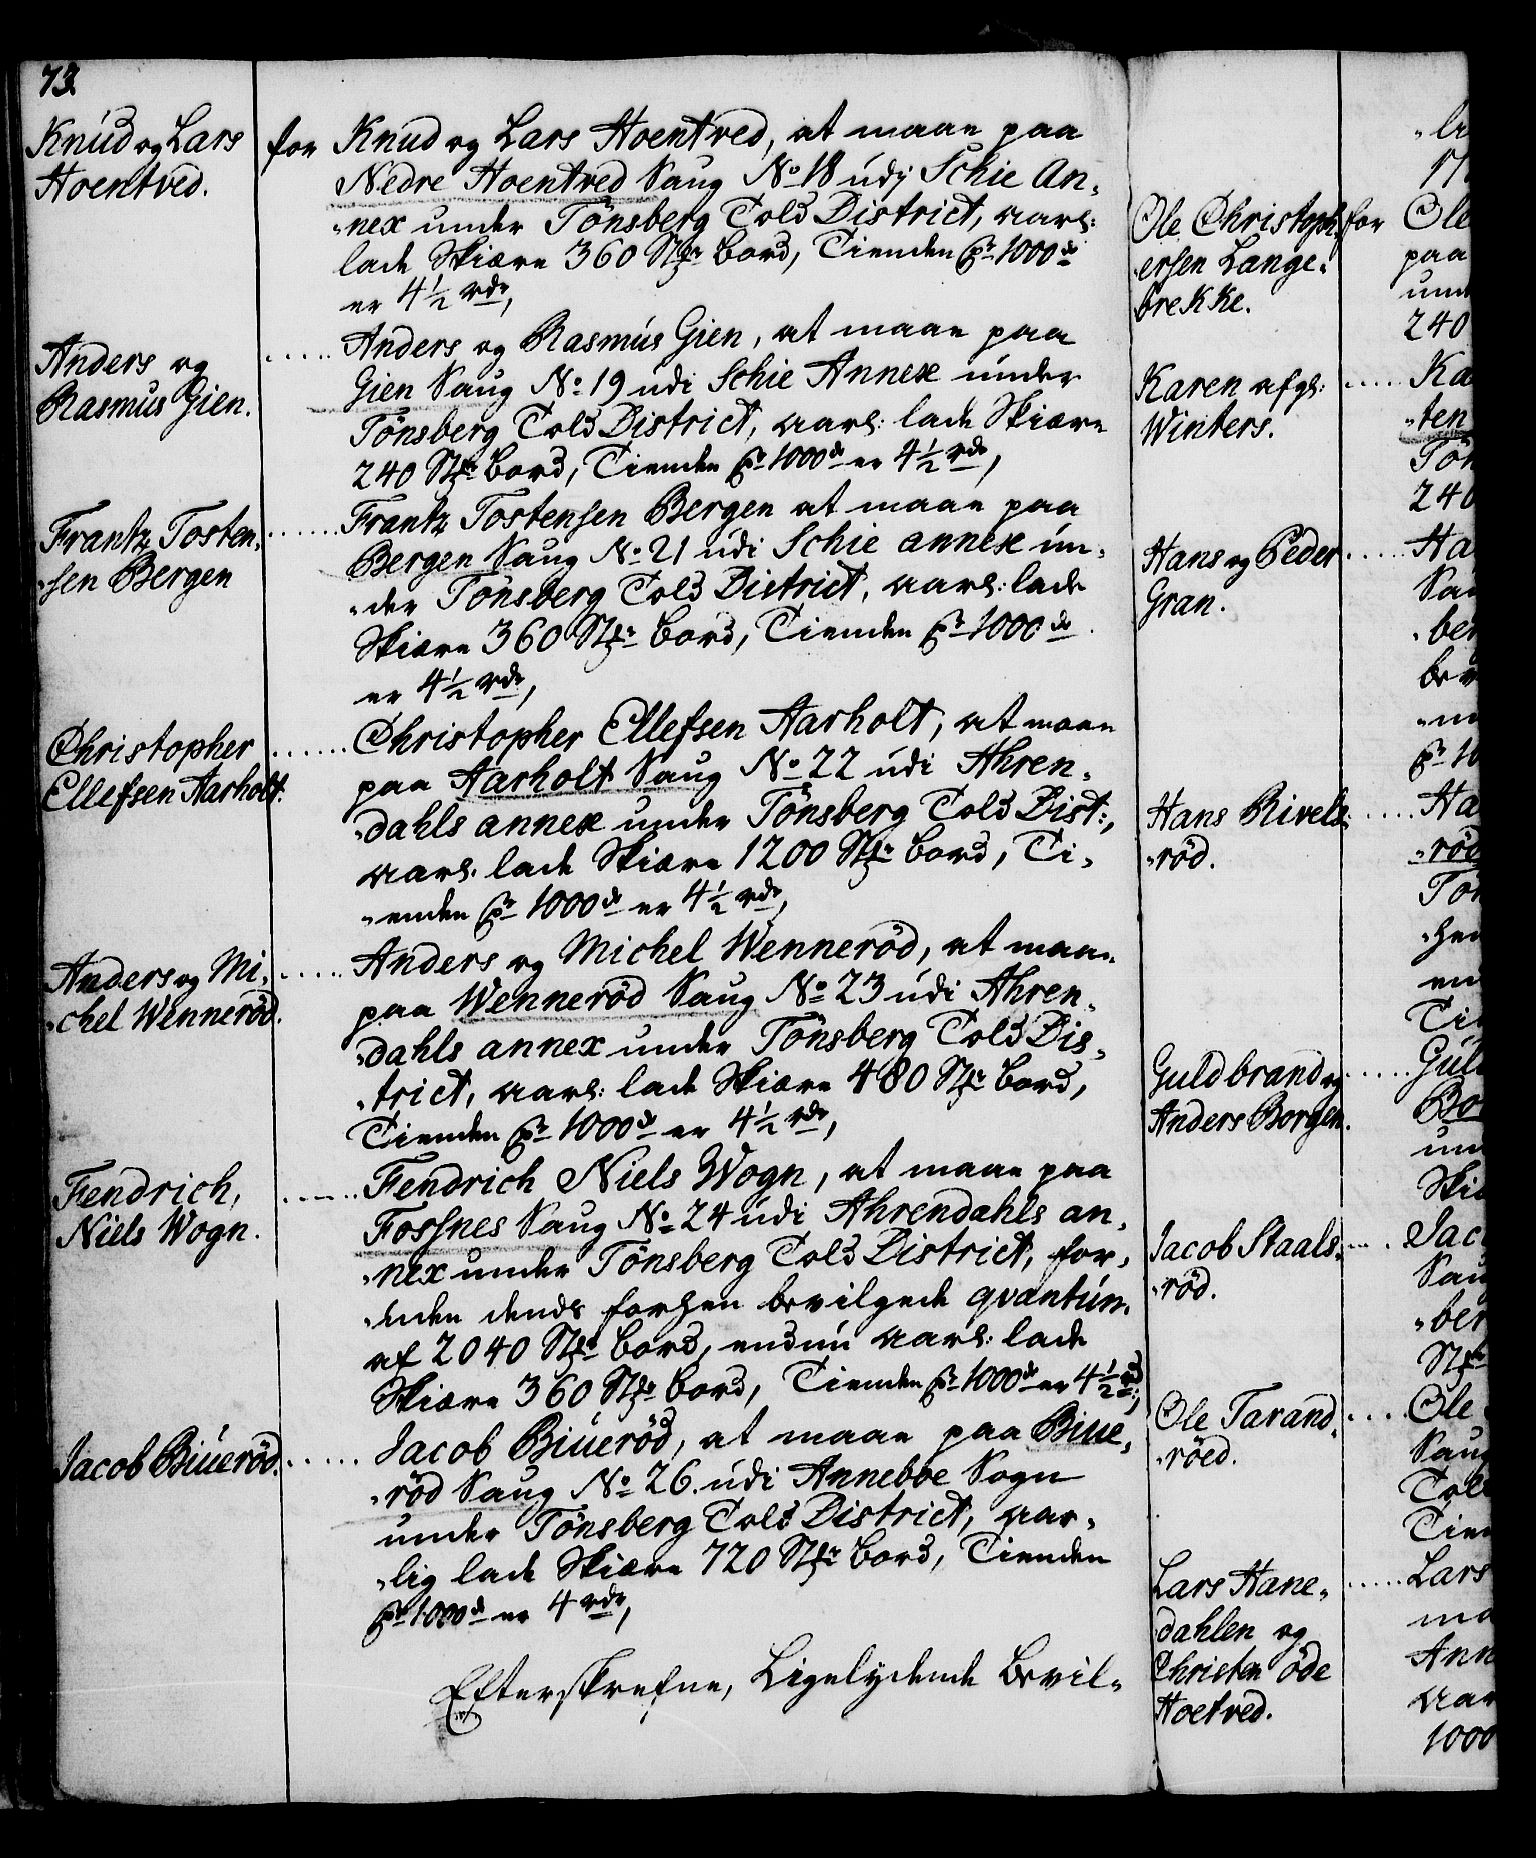 73.
Knud og Lars
Hoentved.
for Knud og Lars Hoentved, at maae paa
Nedre Hoentved Saug No 18 udj Schie An„
„nex under Tönsberg Told District, aarl:
lade Skiære 360 Stkr bord, Tienden pr 1000de
er 4½ rdr,
Anders og
Rasmus Gien.
..... Anders og Rasmus Gien, at maae paa
Gien Saug No 19 udi Schie Annex under
Tönsberg Told District, aarl: lade Skiære
240 Stkr bord, Tienden pr 1000de er 4½ rdr,
Frantz Tosten„
„sen Bergen
...... Frantz Tostensen Bergen at maae paa
Bergen Saug No 21 udi Schie annex un„
„der Tönsberg Told District, aarl: lade
Skiære 360 Stkr bord, Tienden pr 1000de
er 4½ rdr,
Christopher
Ellefsen Aarholt.
...... Christopher Ellefsen Aarholt, at maae
paa Aarholt Saug No 22 udi Ahren„
„dahls annex under Tönsberg Told Dist:,
aarl. lade Skiære 1200 Stkr bord, Ti„
„enden pr 1000de er 4½ rdr,
Anders og Mi„
„chel Wenneröd.
..... Anders og Michel Wenneröd, at maae
paa Wenneröd Saug No 23 udi Ahren„
„dahls annex under Tönsberg Told Dis„
„trict, aarl: lade Skiære 480 Stkr bord,
Tienden pr 1000de er 4½ rdr,
Fendrich,
Niels Wogn.
...... Fendrich Niels Wogn, at maae paa
Fossnes Saug No 24 udi Ahrendahls an„
„nex under Tönsberg Told District, for„
„uden dends forhen bevilgede qvantum
af 2040 Stkr bord, endnu aarl: lade
Skiære 360 Stkr bord, Tienden pr 1000de er 4½ rd:,
Jacob Biueröd.
...... Jacob Biueröd, at maae paa Biue„
„röd Saug No 26. udi Anneboe Sogn
under Tönsberg Told District, aar„
„lig lade Skiære 720 Stkr bord, Tienden
pr 1000de er 4 rdr,
Efterskrefne, Ligelydende Bevil„
Ole Christoph„
„ersen Lange„
brekke.
for Ole
paa
und
240
Karen afgl:
Winters.
..... Ka
„ten
Tön
240
Hans og Peder
Gran.
..... Ha
Sau
„ber
bev
pr 10
Hans Rivels„
„röd.
..... Ha
„röd
Tön
„hen
Tie
Guldbrand og
Anders Borgen.
...... Gul
Bo
un
Skiæ
Jacob Staals„
„röd.
.... Jac
Sau
„ber
Stkr
Ole Tarand„
„röed.
.... Ole
Saug
Told
Tien
Lars Hane„
dahlen og
Christen öde
Hoetved.
..... Lars
ma
Ann
aar
1000